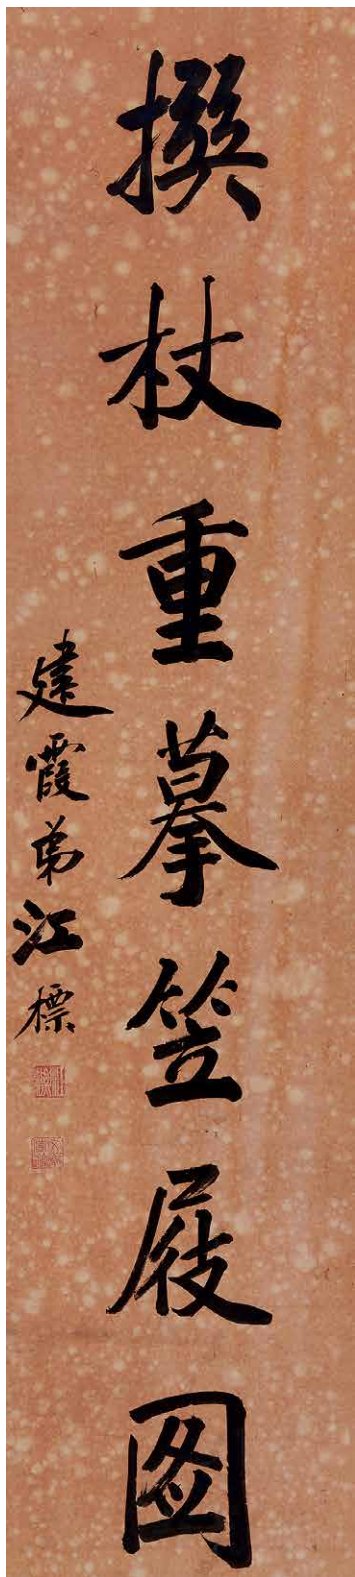 撰杖重摹笠屐图
建霞弟江標